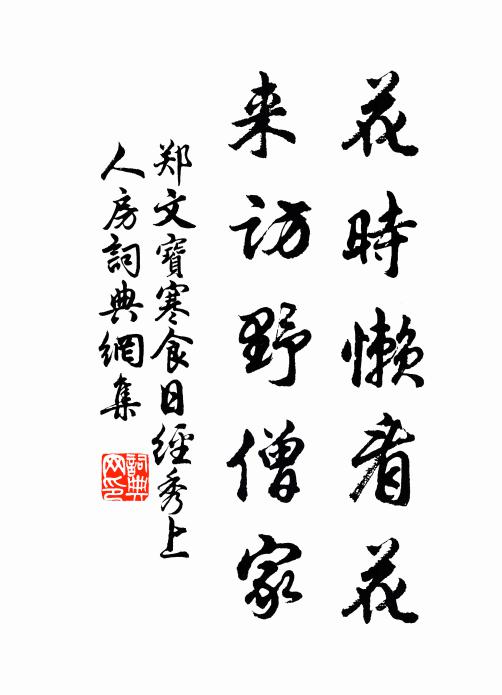 花時懶看花
来訪野僧家
郑文寶寒食日經秀上
人房詞典網集
詞典
网印